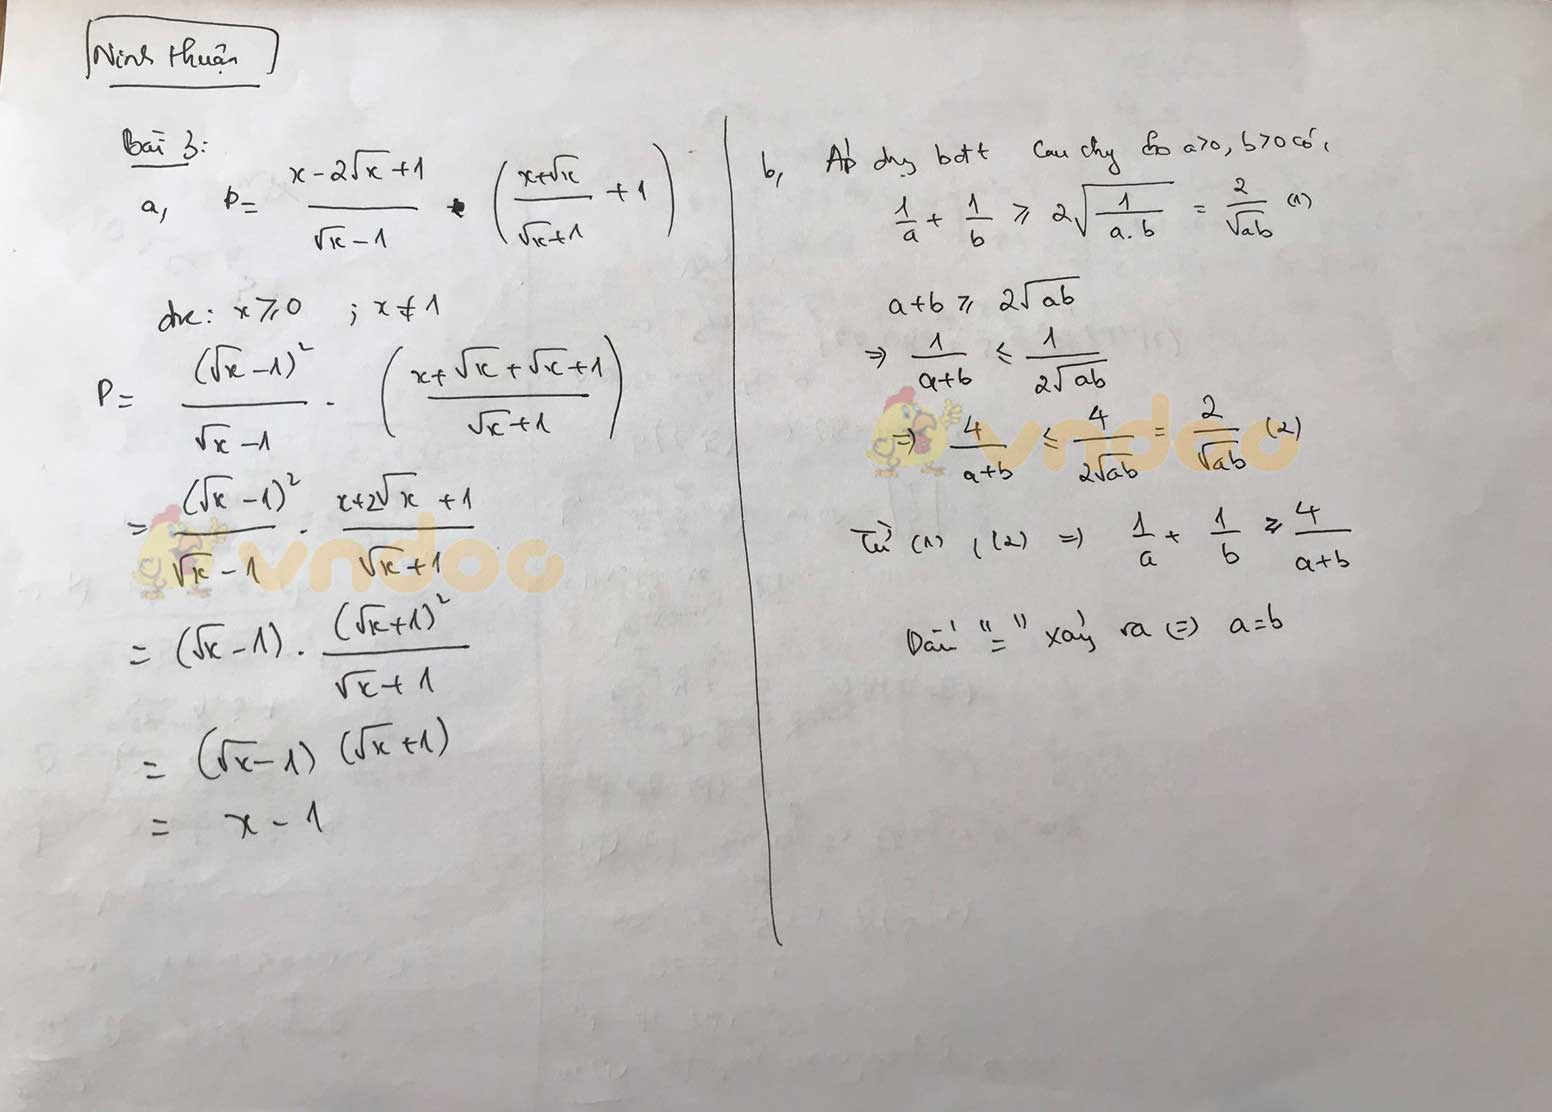 Ninh Thuận
Bài 3:
a, P = \frac{x-2\sqrt{x}+1}{\sqrt{x}-1} \cdot \left(\frac{x+\sqrt{x}}{\sqrt{x}+1}+1\right)
đk: x ⩾ 0 ; x ≠ 1
P = \frac{(\sqrt{x}-1)^2}{\sqrt{x}-1} \cdot \left(\frac{x+\sqrt{x}+\sqrt{x}+1}{\sqrt{x}+1}\right)
= \frac{(\sqrt{x}-1)^2}{\sqrt{x}-1} \cdot \frac{x+2\sqrt{x}+1}{\sqrt{x}+1}
= (\sqrt{x}-1) \cdot \frac{(\sqrt{x}+1)^2}{\sqrt{x}+1}
= (\sqrt{x}-1)(\sqrt{x}+1)
= x - 1
b, Áp dụng bđt Cauchy cho a>0, b>0 có:
\frac{1}{a}+\frac{1}{b} ⩾ 2\sqrt{\frac{1}{a.b}} = \frac{2}{\sqrt{ab}} (1)
a+b ⩾ 2\sqrt{ab}
⇒ \frac{1}{a+b} ≤ \frac{1}{2\sqrt{ab}}
⇒ \frac{4}{a+b} ≤ \frac{4}{2\sqrt{ab}} = \frac{2}{\sqrt{ab}} (2)
Từ (1), (2) ⇒ \frac{1}{a}+\frac{1}{b} ⩾ \frac{4}{a+b}
Dấu "=" xảy ra (=) a=b
vndoc
vndoc